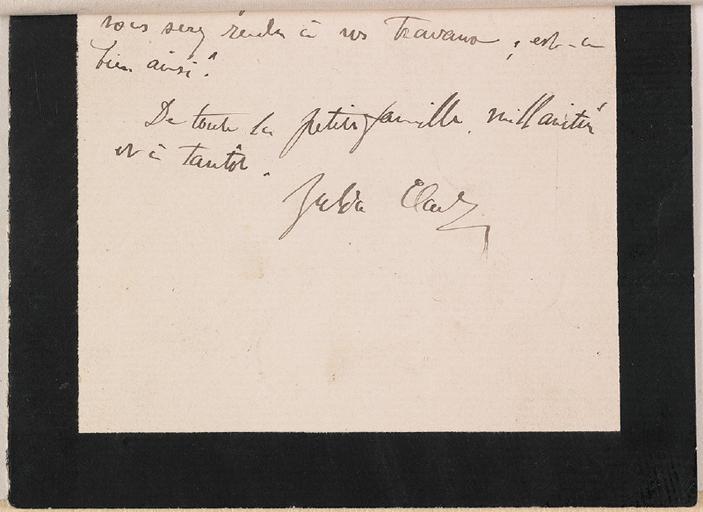 vous serez rendu à vos travaux ; est-ce
bien ainsi ?
De toute la petite famille, mill amitiés
et à tantôt.
Julia